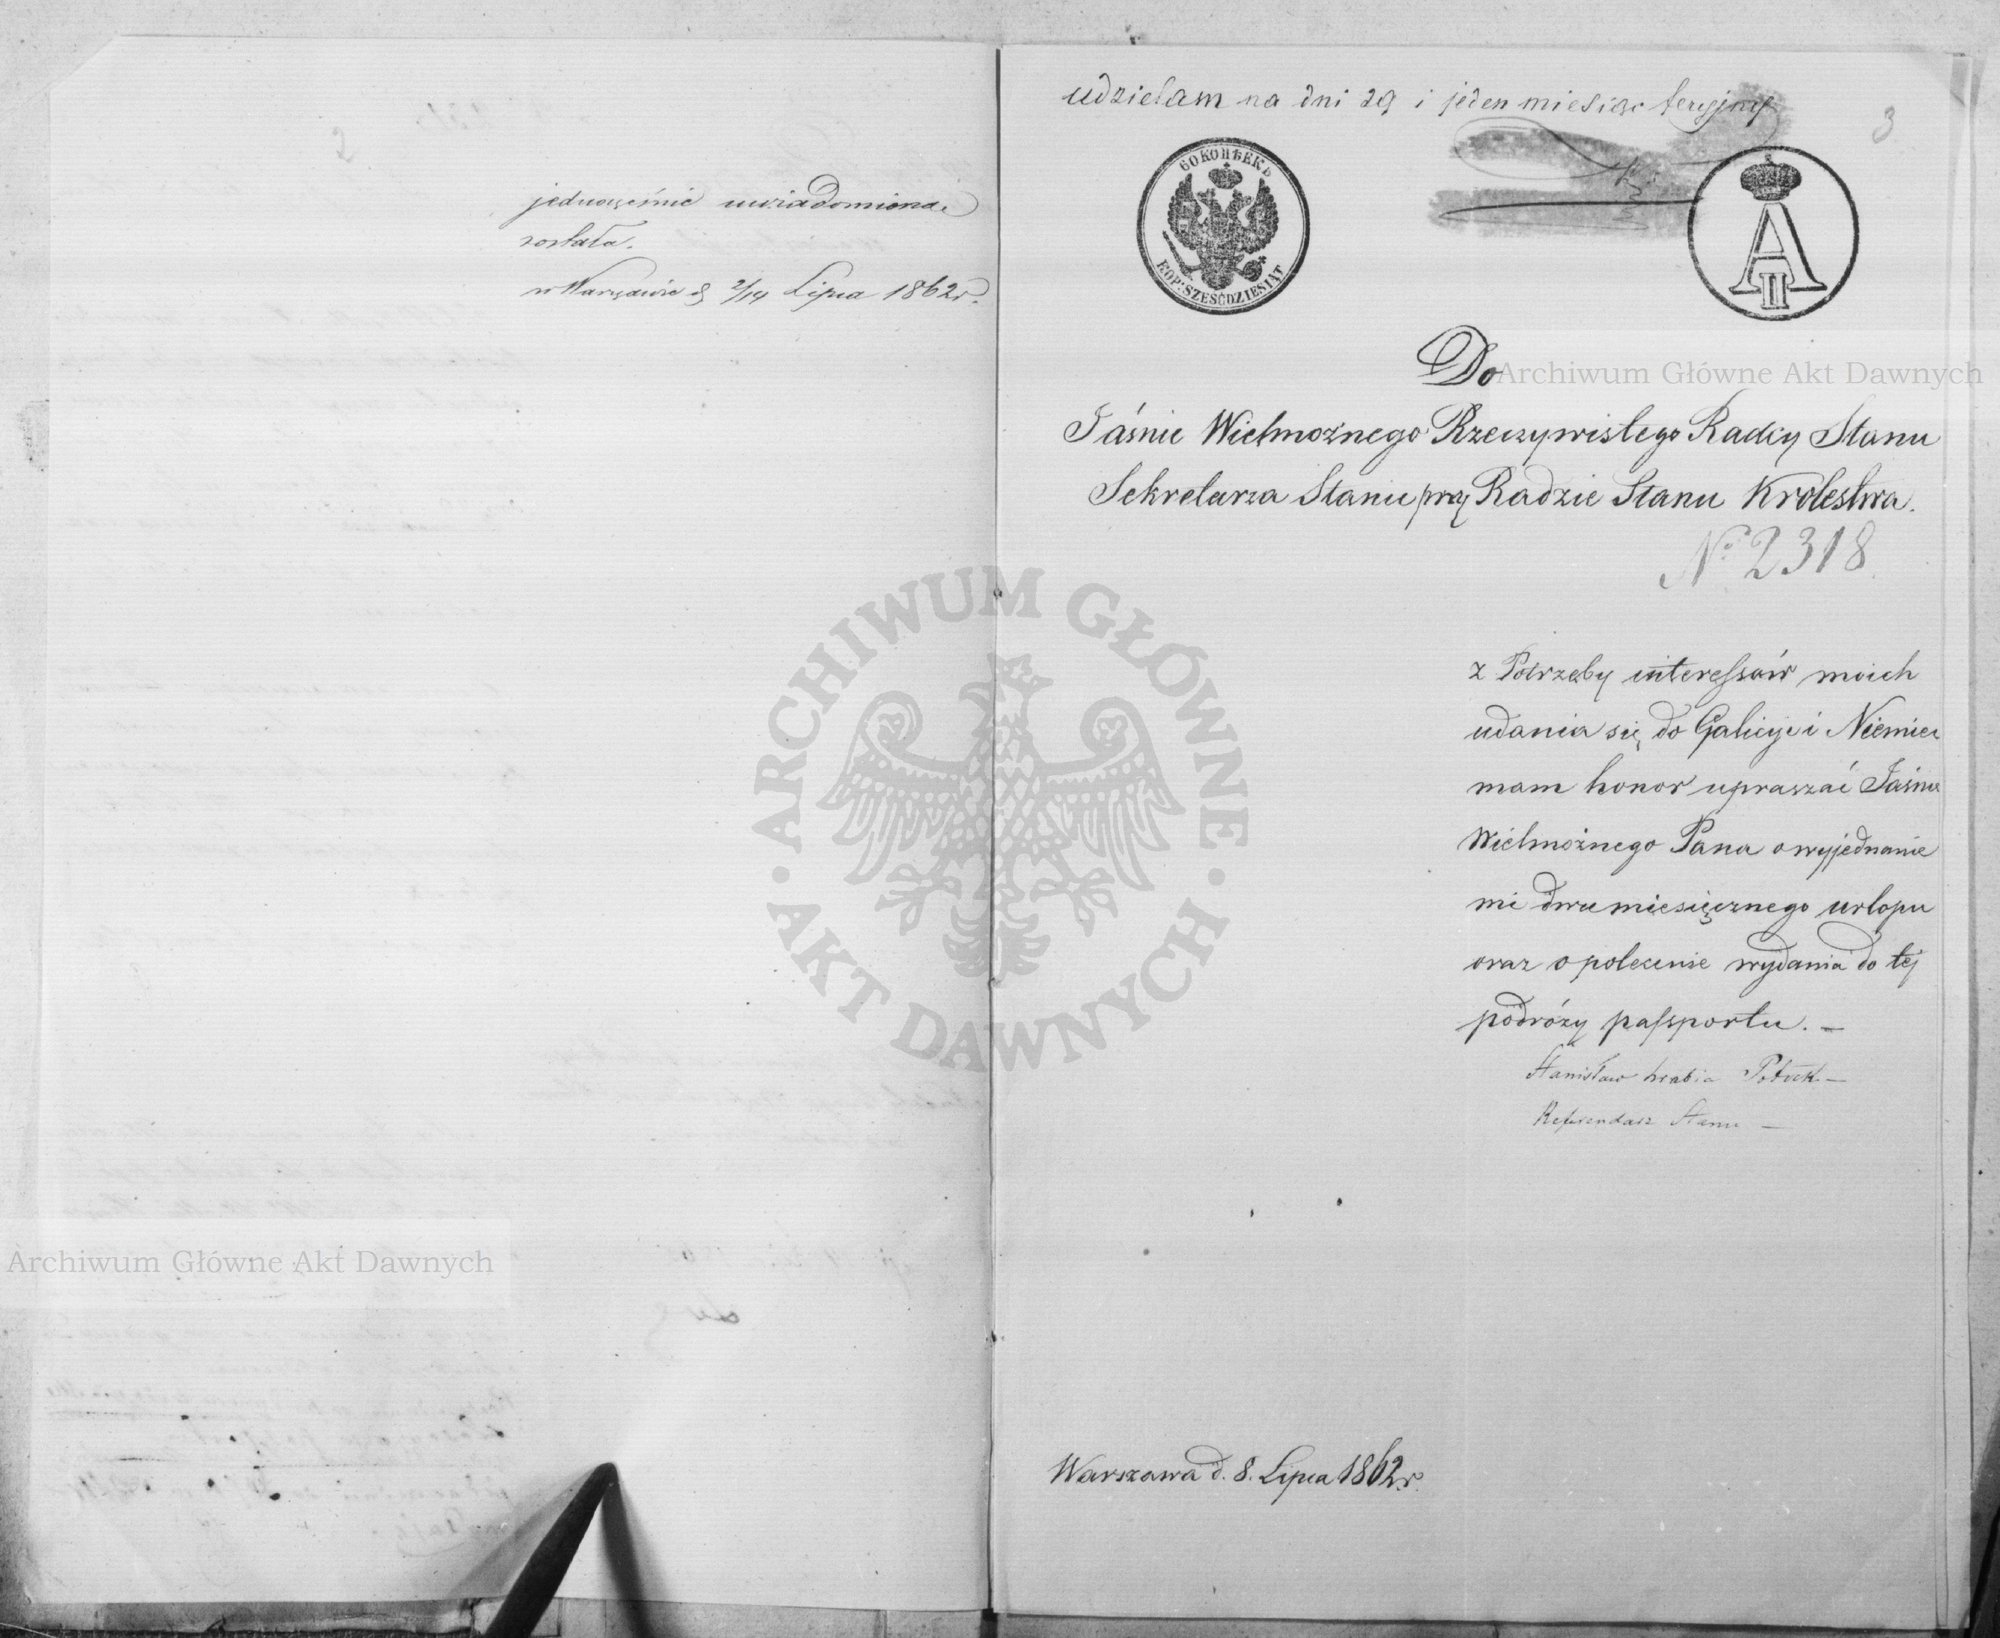 jednocześnie uwiadomioną
została.
w Warszawie d 2/14 Lipca 1862 r.
udzielam na dni 29 i jeden miesiąc feryjny
3
60 КОПѢЕКЪ
KOP: SZEŚĆDZIESIĄT
A II
Do
Jaśnie Wielmożnego Rzeczywistego Radcy Stanu
Sekretarza Stanu przy Radzie Stanu Królestwa.
Nº 2318
z Potrzeby interessów moich
udania się do Galicyi i Niemiec
mam honor upraszać Jaśnie
Wielmożnego Pana o wyjednanie
mi dwumiesięcznego urlopu
oraz o polecenie wydania do tej
podróży passportu. —
Stanisław hrabia Potocki —
Referendarz Stanu —
Warszawa d. 8. Lipca 1862 r.
Archiwum Główne Akt Dawnych
ARCHIWUM GŁÓWNE · AKT DAWNYCH ·
Archiwum Główne Akt Dawnych